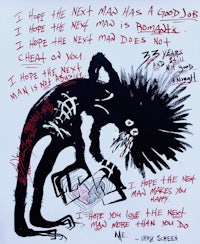 I HOPE THE NEXT MAN HAS A GOOD JOB
I HOPE THE NEXT MAN IS ROMANTIC
I HOPE THE NEXT MAN DOES NOT
CHEAT ON YOU
I HOPE THE NEXT
MAN IS NOT ABUSIVE
33 YEARS
STILL
NOT GOOD
ENOUGH
I HOPE THE NEXT
MAN MAKES YOU
HAPPY
I HOPE YOU LOVE THE NEXT
MAN MORE THAN YOU DO
ME